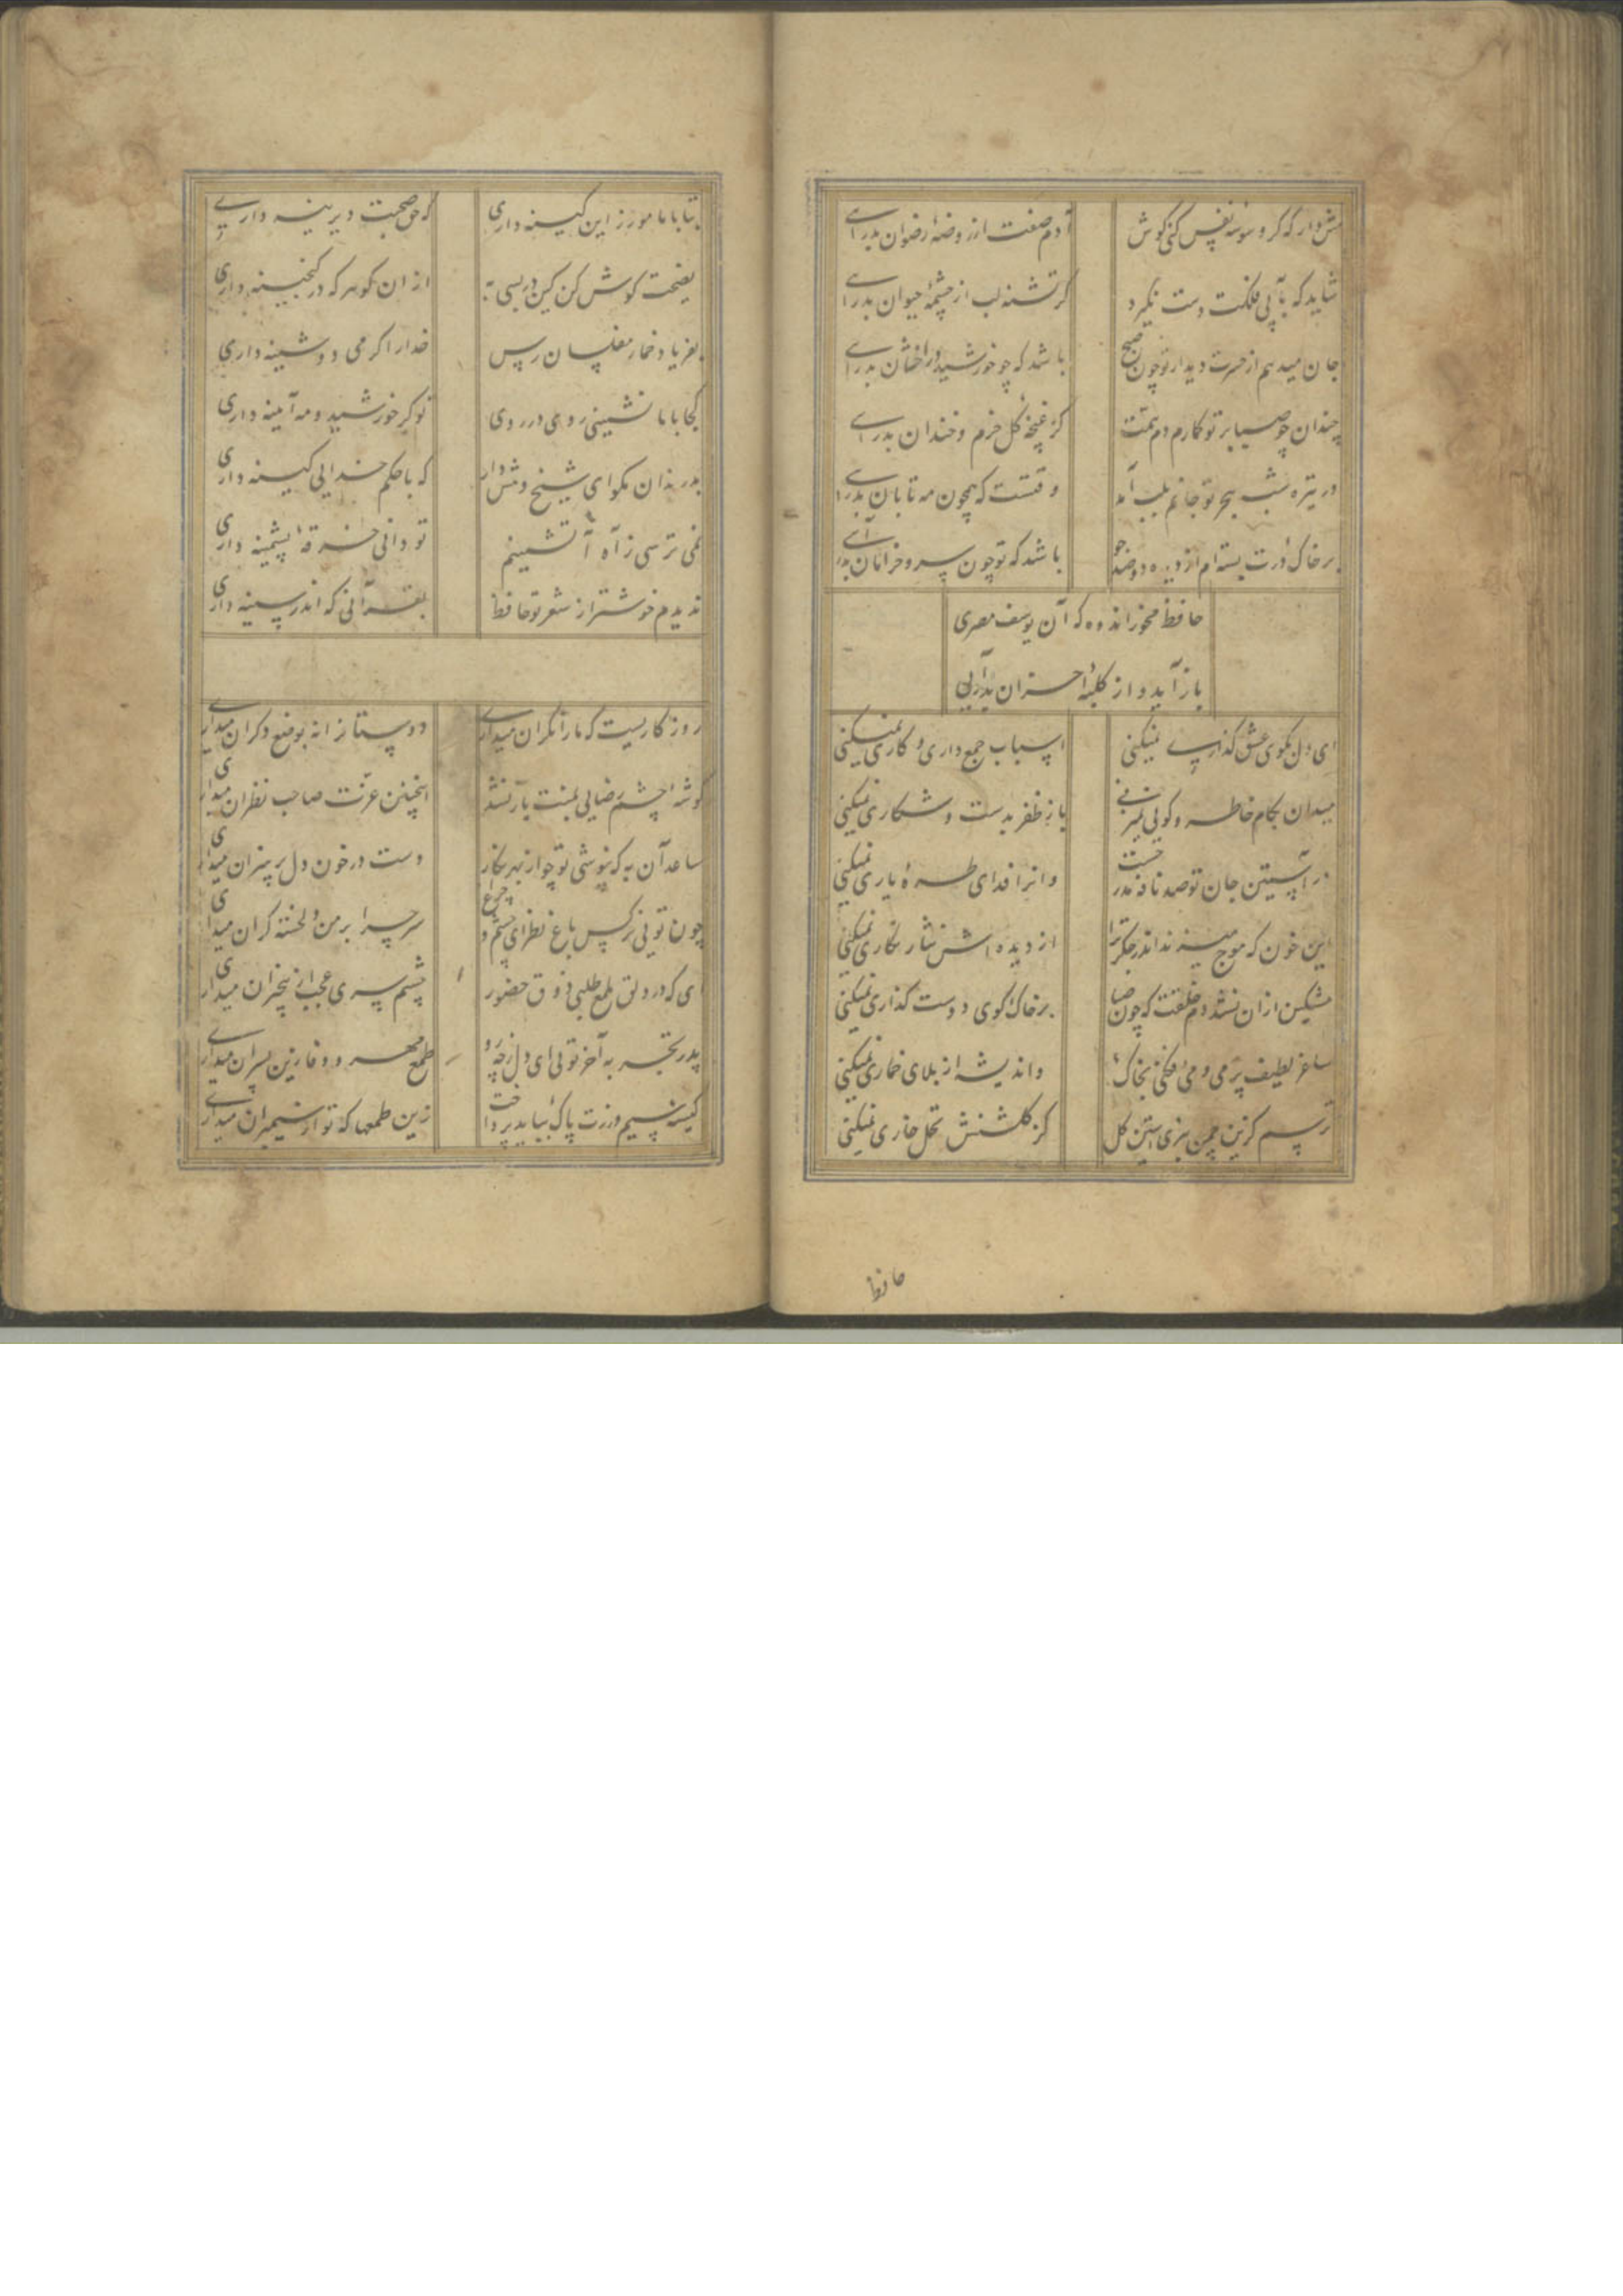 هش دار که کر وسوسه نفس کنی کوش
آدم صفت از روضهٔ رضوان بدرآے
شاید که بآبی فلکت دست نکیرد
کر تشنه لب از چشمهٔ حیوان بدراے
جان میدهم از حسرت دیدار تو چون صبح
باشد که چو خورشید دراخشان بدراے
چندان چو صبا بر تو کمارم دم همت
کز غنچه کل خرم و خندان بدراے
در تیره شب هجر تو جانم بلب آمد
وقتست که همچون مه تابان بدراے
بر خاک درت بسته ام از دیده دو صد جو
باشد که تو چون سرو خرامان بدرآے
حافظ مخور اندوه که آن یوسف مصری
باز آید و از کلبهٔ احزان بدرآیی
ای دل بکوی عشق کذارے نمیکنی
اسباب جمع داری و کاری نمیکنی
میدان بکام خاطر و کویی نمیزنی
باز ظفر بدست و شکاری نمیکنی
در آستین جان تو صد نافه مدرجست
وانرا فدای طرهٔ یاری نمیکنی
این خون که موج میزند اندر جکر ترا
از دیده اش نثار نکاری نمیکنی
مشکین ازان نشد دم خلقت که چون صبا
بر خاک کوی دوست کذاری نمیکنی
ساغر لطیف پر می و می افکنی بخاک
واندیشه از بلای خماری نمیکنی
ترسم کزین چمن نبری آستین کل
کز کلشنش تحمل خاری نمیکنی
حافظ
بتا با ما مورز این کینه داری
که حق صحبت دیرینه دارے
نصیحت کوش کن کین در بسی به
از ان کوهر که در کنجینه داری
بفریاد خمار مفلسان رس
خدارا کر می دوشینه داری
کجا با ما نشینی رو می در روی
تو کز خورشید و مه آیینه داری
بد رندان مکو ای شیخ و هش دار
که با حکم خدایی کینه داری
نمی ترسی ز آه آتشینم
تو دانی خرقهٔ پشمینه داری
ندیدم خوشتر از شعر تو حافظ
بقرآنی که اندر سینه داری
روز کاریست که مارا نکران میدارے
دوستانرا نه بوضع دکران میدارے
کوشهٔ چشم رضایی بمنت باز نشد
اینچنین عزت صاحب نظران میداری
ساعد آن به که بپوشی تو چو از بهر نکار
دست در خون دل پر هنران میداری
چون تویی نرکس باغ نظر ای چشم و چراغ
سر چرا بر من دلخسته کران میداری
ای که در دلق ملمع طلبی ذوق حضور
چشم سیری عجب از بیخبران میداری
پدر تجربه آخر تویی ای دل ز چه رو
طمع مهر و وفا زین پسران میدارے
کیسهٔ سیم و زرت پاک بباید پرداخت
زین طمعها که تو از سیمبران میدارے